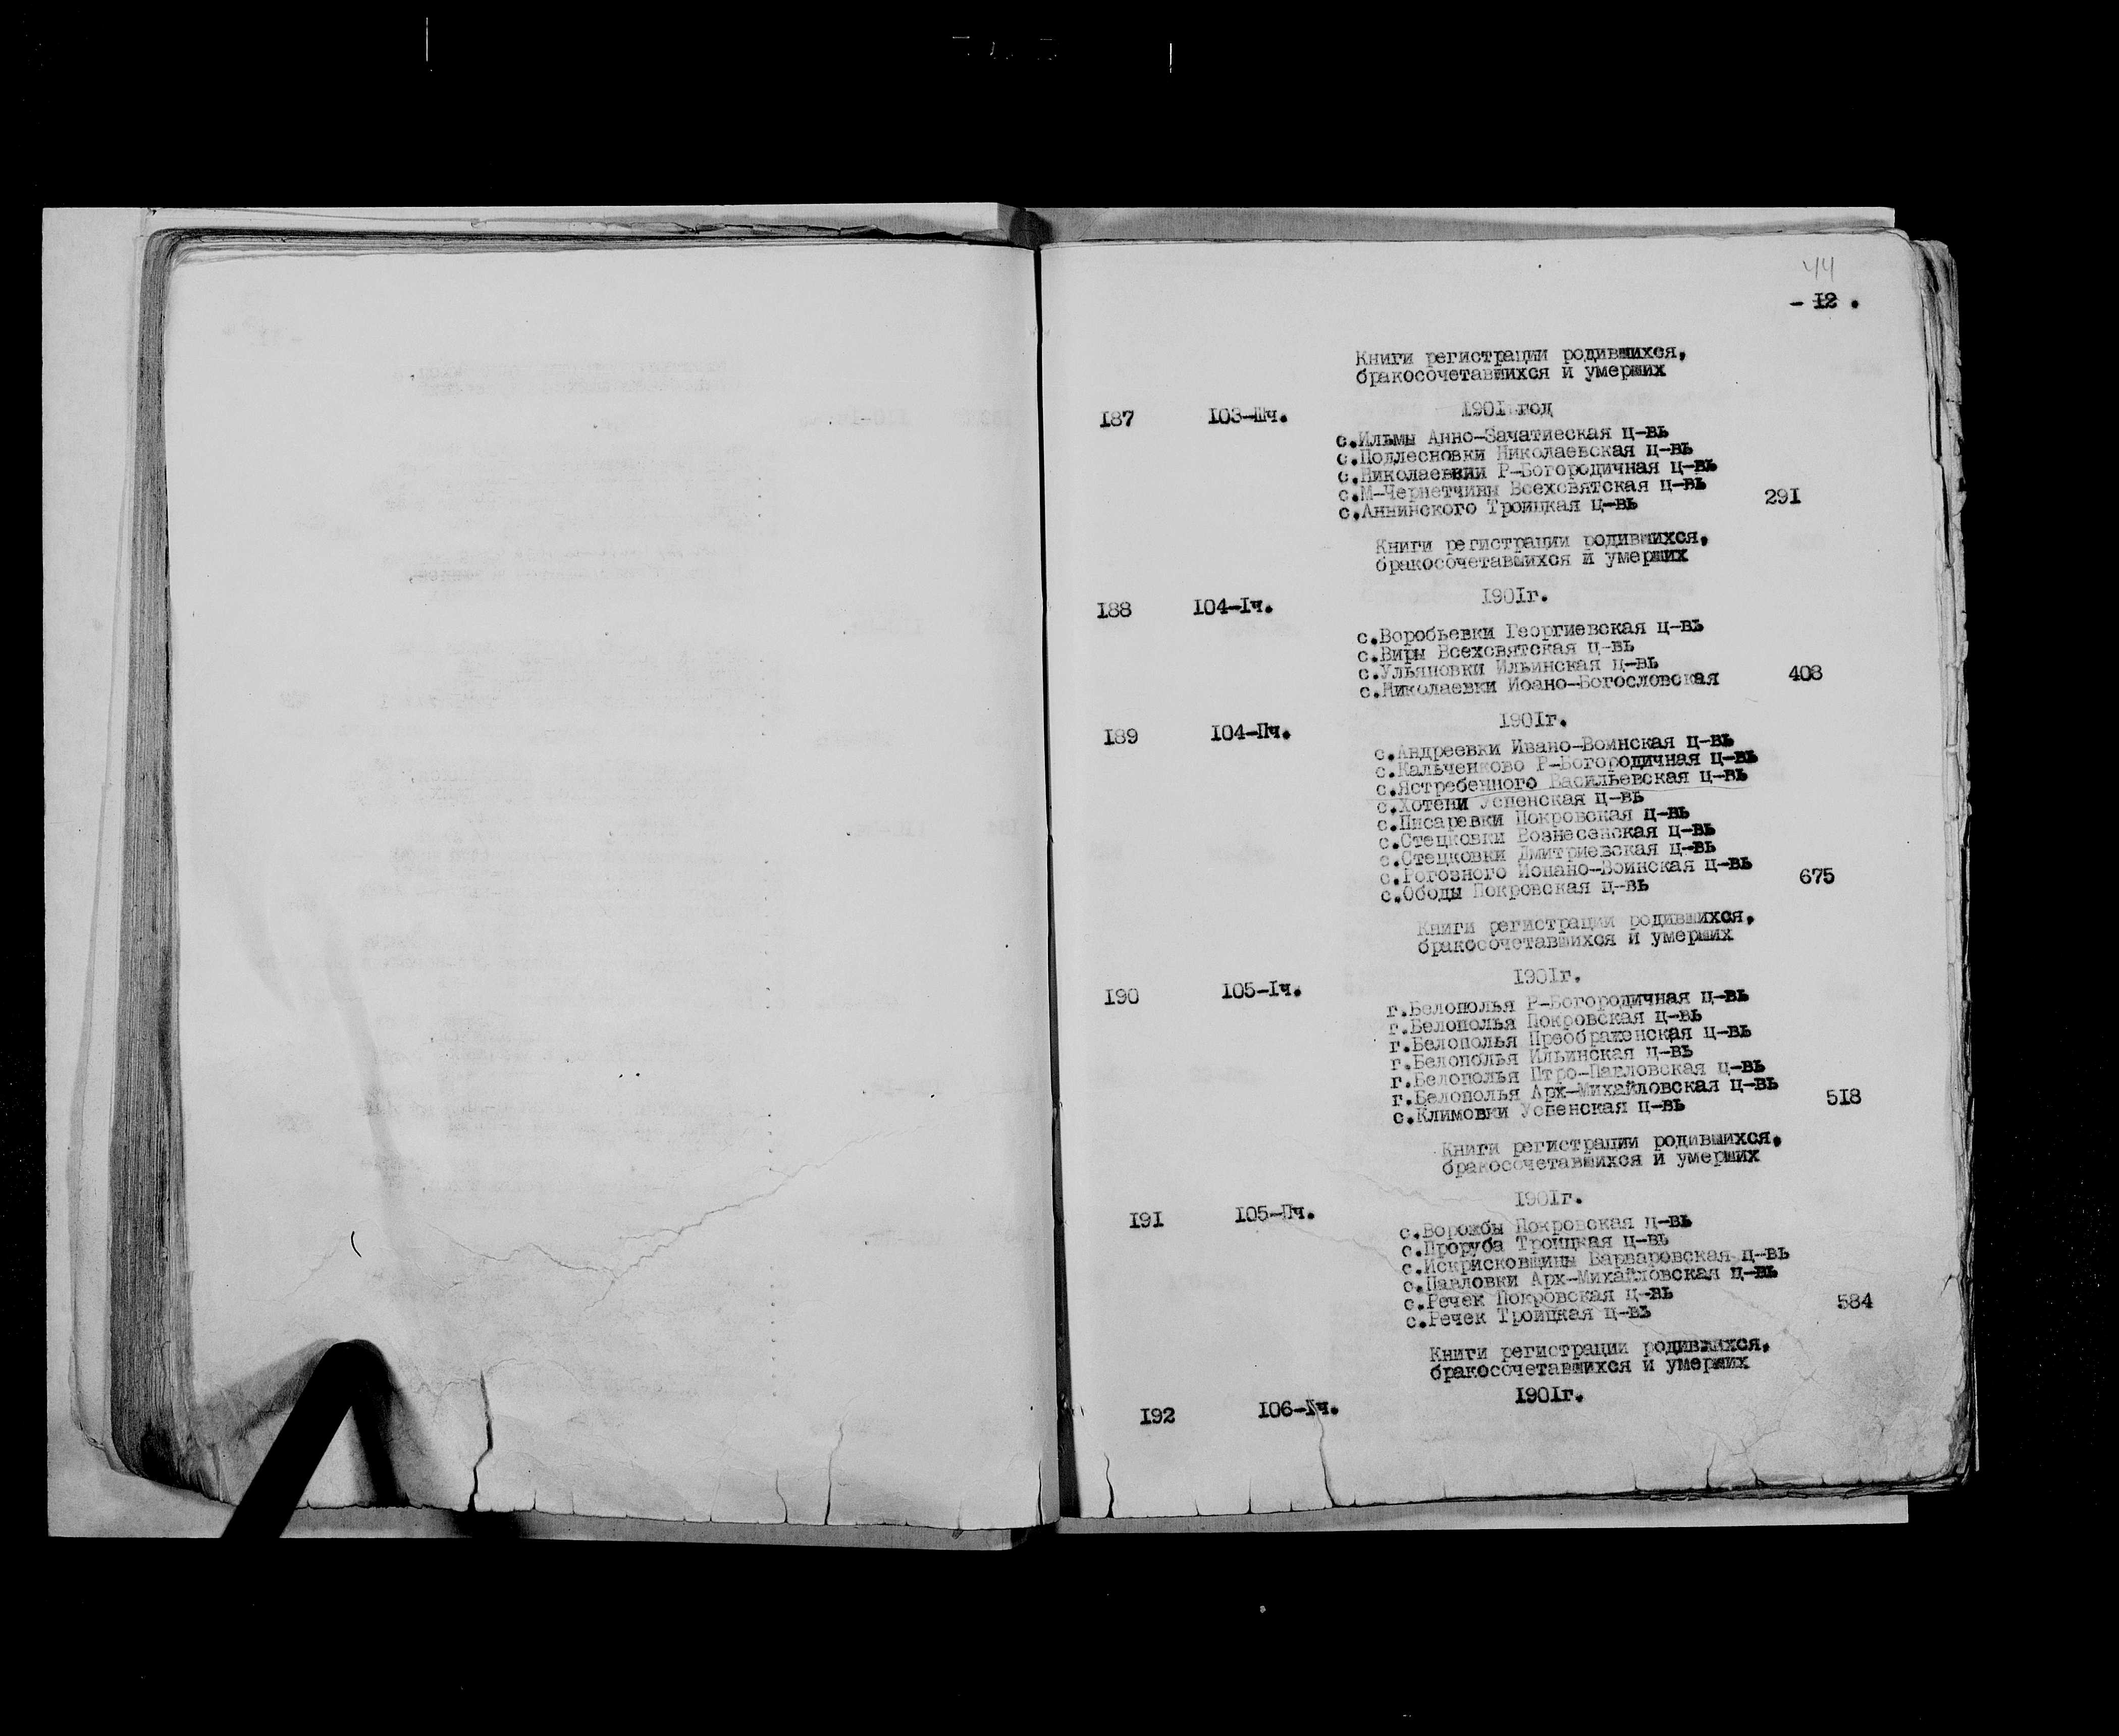 44
- 12 .
Книги регистрации родившихся,
бракосочетавшихся и умерших
187 103-Шч. 1901 год
с.Ильмы Анно-Зачатиеская ц-вь
с.Подлесновки Николаевская ц-вь
с.Николаевкии Р-Богородичная ц-вь
с.М-Чернетчины Всехсвятская ц-вь
с.Аннинского Троицкая ц-вь 291
Книги регистрации родившихся,
бракосочетавшихся и умерших
188 104-Iч. 1901г.
с.Воробьевки Георгиевская ц-вь
с.Виры Всехсвятская ц-вь
с.Ульяновки Ильинская ц-вь
с.Николаевки Иоано-Богословская 408
189 104-Пч. 1901г.
с.Андреевки Ивано-Воинская ц-вь
с.Кальченково Р-Богородичная ц-вь
с.Ястребенного Васильевская ц-вь
с.Хотени Успенская ц-вь
с.Писаревки Покровская ц-вь
с.Стецковки Вознесенская ц-вь
с.Стецковки Дмитриевская ц-вь
с.Рогозного Иоцано-Воинская ц-вь
с.Ободы Покровская ц-вь 675
Книги регистрации родившихся,
бракосочетавшихся и умерших
190 105-Iч. 1901г.
г.Белополья Р-Богородичная ц-вь
г.Белополья Покровская ц-вь
г.Белополья Преображенская ц-вь
г.Белополья Ильинская ц-вь
г.Белополья Птро-Павловская ц-вь
г.Белополья Арх-Михайловская ц-вь
с.Климовки Успенская ц-вь 518
Книги регистрации родившихся,
бракосочетавшихся и умерших
191 105-Пч. 1901г.
с.Ворожбы Покровская ц-вь
с.Проруба Троицкая ц-вь
с.Искрисковщины Варваровская ц-вь
с.Павловки Арх-Михайловская ц-вь
с.Речек Покровская ц-вь
с.Речек Троицкая ц-вь 584
Книги регистрации родившихся,
бракосочетавшихся и умерших
192 106-Iч. 1901г.